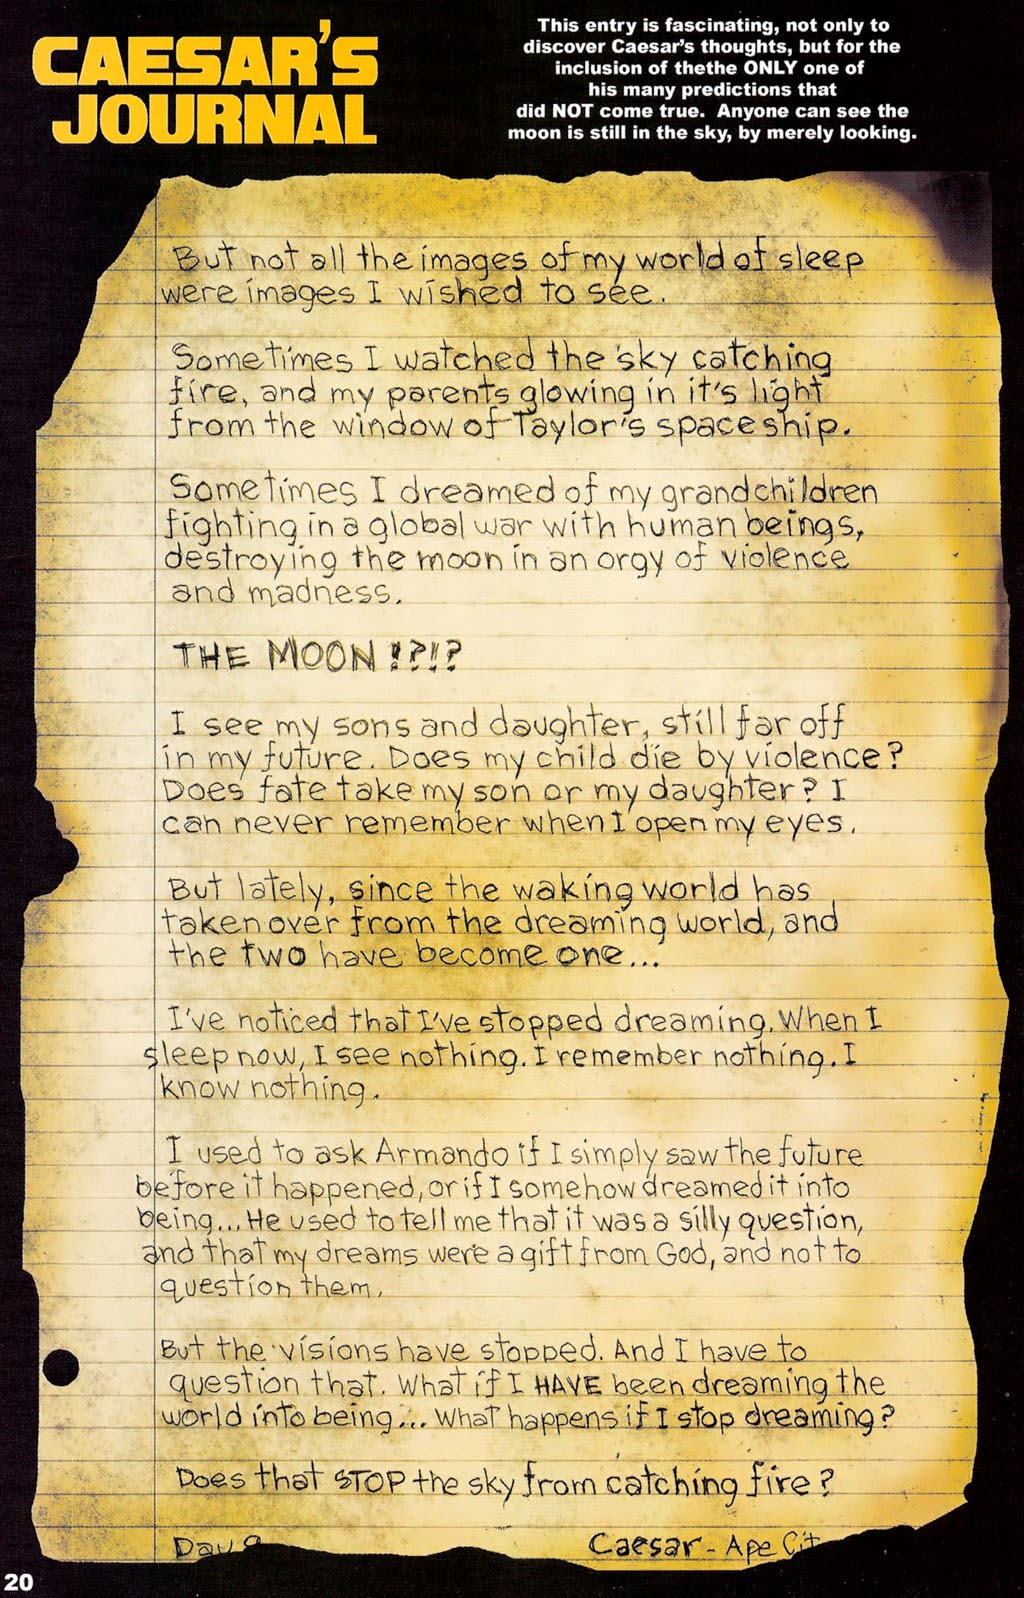 CAESAR'S
JOURNAL
This entry is fascinating, not only to
discover Caesar's thoughts, but for the
inclusion of thethe ONLY one of
his many predictions that
did NOT come true. Anyone can see the
moon is still in the sky, by merely looking.
But not all the images of my world of sleep
were images I wished to see.
Sometimes I watched the sky catching
fire, and my parents glowing in it's light
from the window of Taylor's spaceship.
Sometimes I dreamed of my grandchildren
fighting in a global war with human beings,
destroying the moon in an orgy of violence
and madness.
THE MOON!?!?
I see my sons and daughter, still far off
in my future. Does my child die by violence?
Does fate take my son or my daughter? I
can never remember when I open my eyes.
But lately, since the waking world has
taken over from the dreaming world, and
the two have become one...
I've noticed that I've stopped dreaming. When I
sleep now, I see nothing. I remember nothing. I
know nothing.
I used to ask Armando if I simply saw the future
before it happened, or if I somehow dreamed it into
being... He used to tell me that it was a silly question,
and that my dreams were a gift from God, and not to
question them.
But the visions have stopped. And I have to
question that. What if I HAVE been dreaming the
world into being... What happens if I stop dreaming?
Does that STOP the sky from catching fire?
Day
Caesar - Ape Cit
20